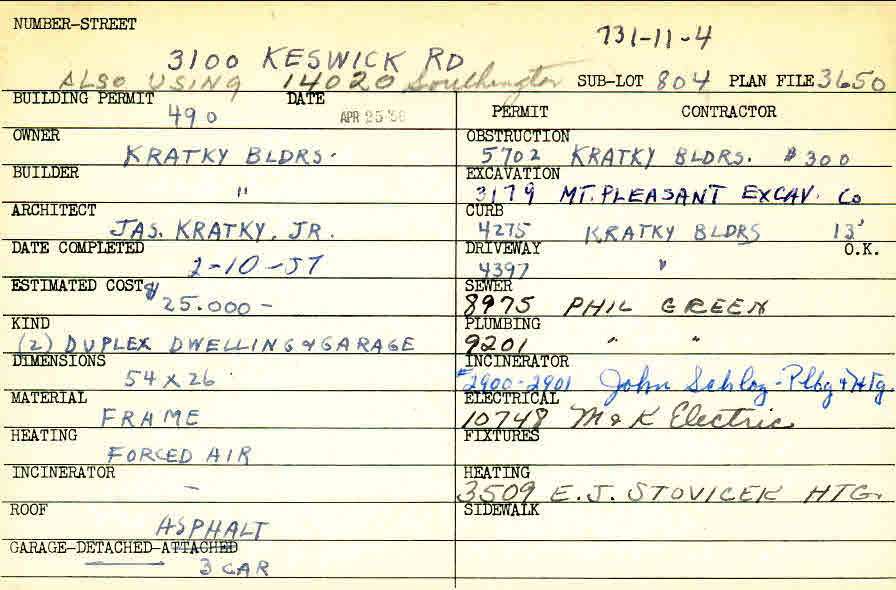 NUMBER-STREET
731-11-4
3100 KESWICK RD
ALSO USING 14020 Southington SUB-LOT 804 PLAN FILE 3650
BUILDING PERMIT DATE
490 APR 25 '56
PERMIT CONTRACTOR
OWNER
KRATKY BLDRS.
OBSTRUCTION
5702 KRATKY BLDRS. $300
BUILDER
"
EXCAVATION
3179 MT. PLEASANT EXCAV. Co
ARCHITECT
JAS. KRATKY, JR.
CURB
4275 KRATKY BLDRS 13'
DATE COMPLETED
2-10-57
DRIVEWAY O.K.
4397 "
ESTIMATED COST $
25.000 -
SEWER
8975 PHIL GREEN
KIND
(2) DUPLEX DWELLING & GARAGE
PLUMBING
9201 " "
DIMENSIONS
54 x 26
INCINERATOR
#2900-2901 John - Plbg & Htg.
MATERIAL
FRAME
ELECTRICAL
10748 M & K Electric
HEATING
FORCED AIR
FIXTURES
INCINERATOR
-
HEATING
3509 E.J. STOVICEK HTG.
ROOF
ASPHALT
SIDEWALK
GARAGE-DETACHED-ATTACHED
3 CAR